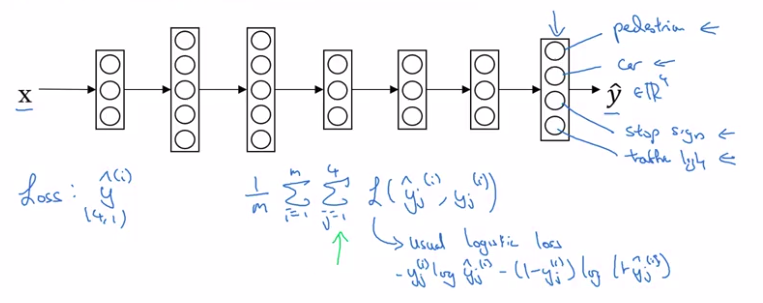 pedestrian ←
car ←
x
ŷ ∈ ℝ⁴
stop sign ←
traffic light ←
Loss: ŷ⁽ⁱ⁾ 1/m ∑ᵢ₌₁ᵐ ∑ⱼ₌₁⁴ ℒ(ŷⱼ⁽ⁱ⁾, yⱼ⁽ⁱ⁾)
(4,1)
↳ usual logistic loss
- yⱼ⁽ⁱ⁾ log ŷⱼ⁽ⁱ⁾ - (1-yⱼ⁽ⁱ⁾) log (1-ŷⱼ⁽ⁱ⁾)